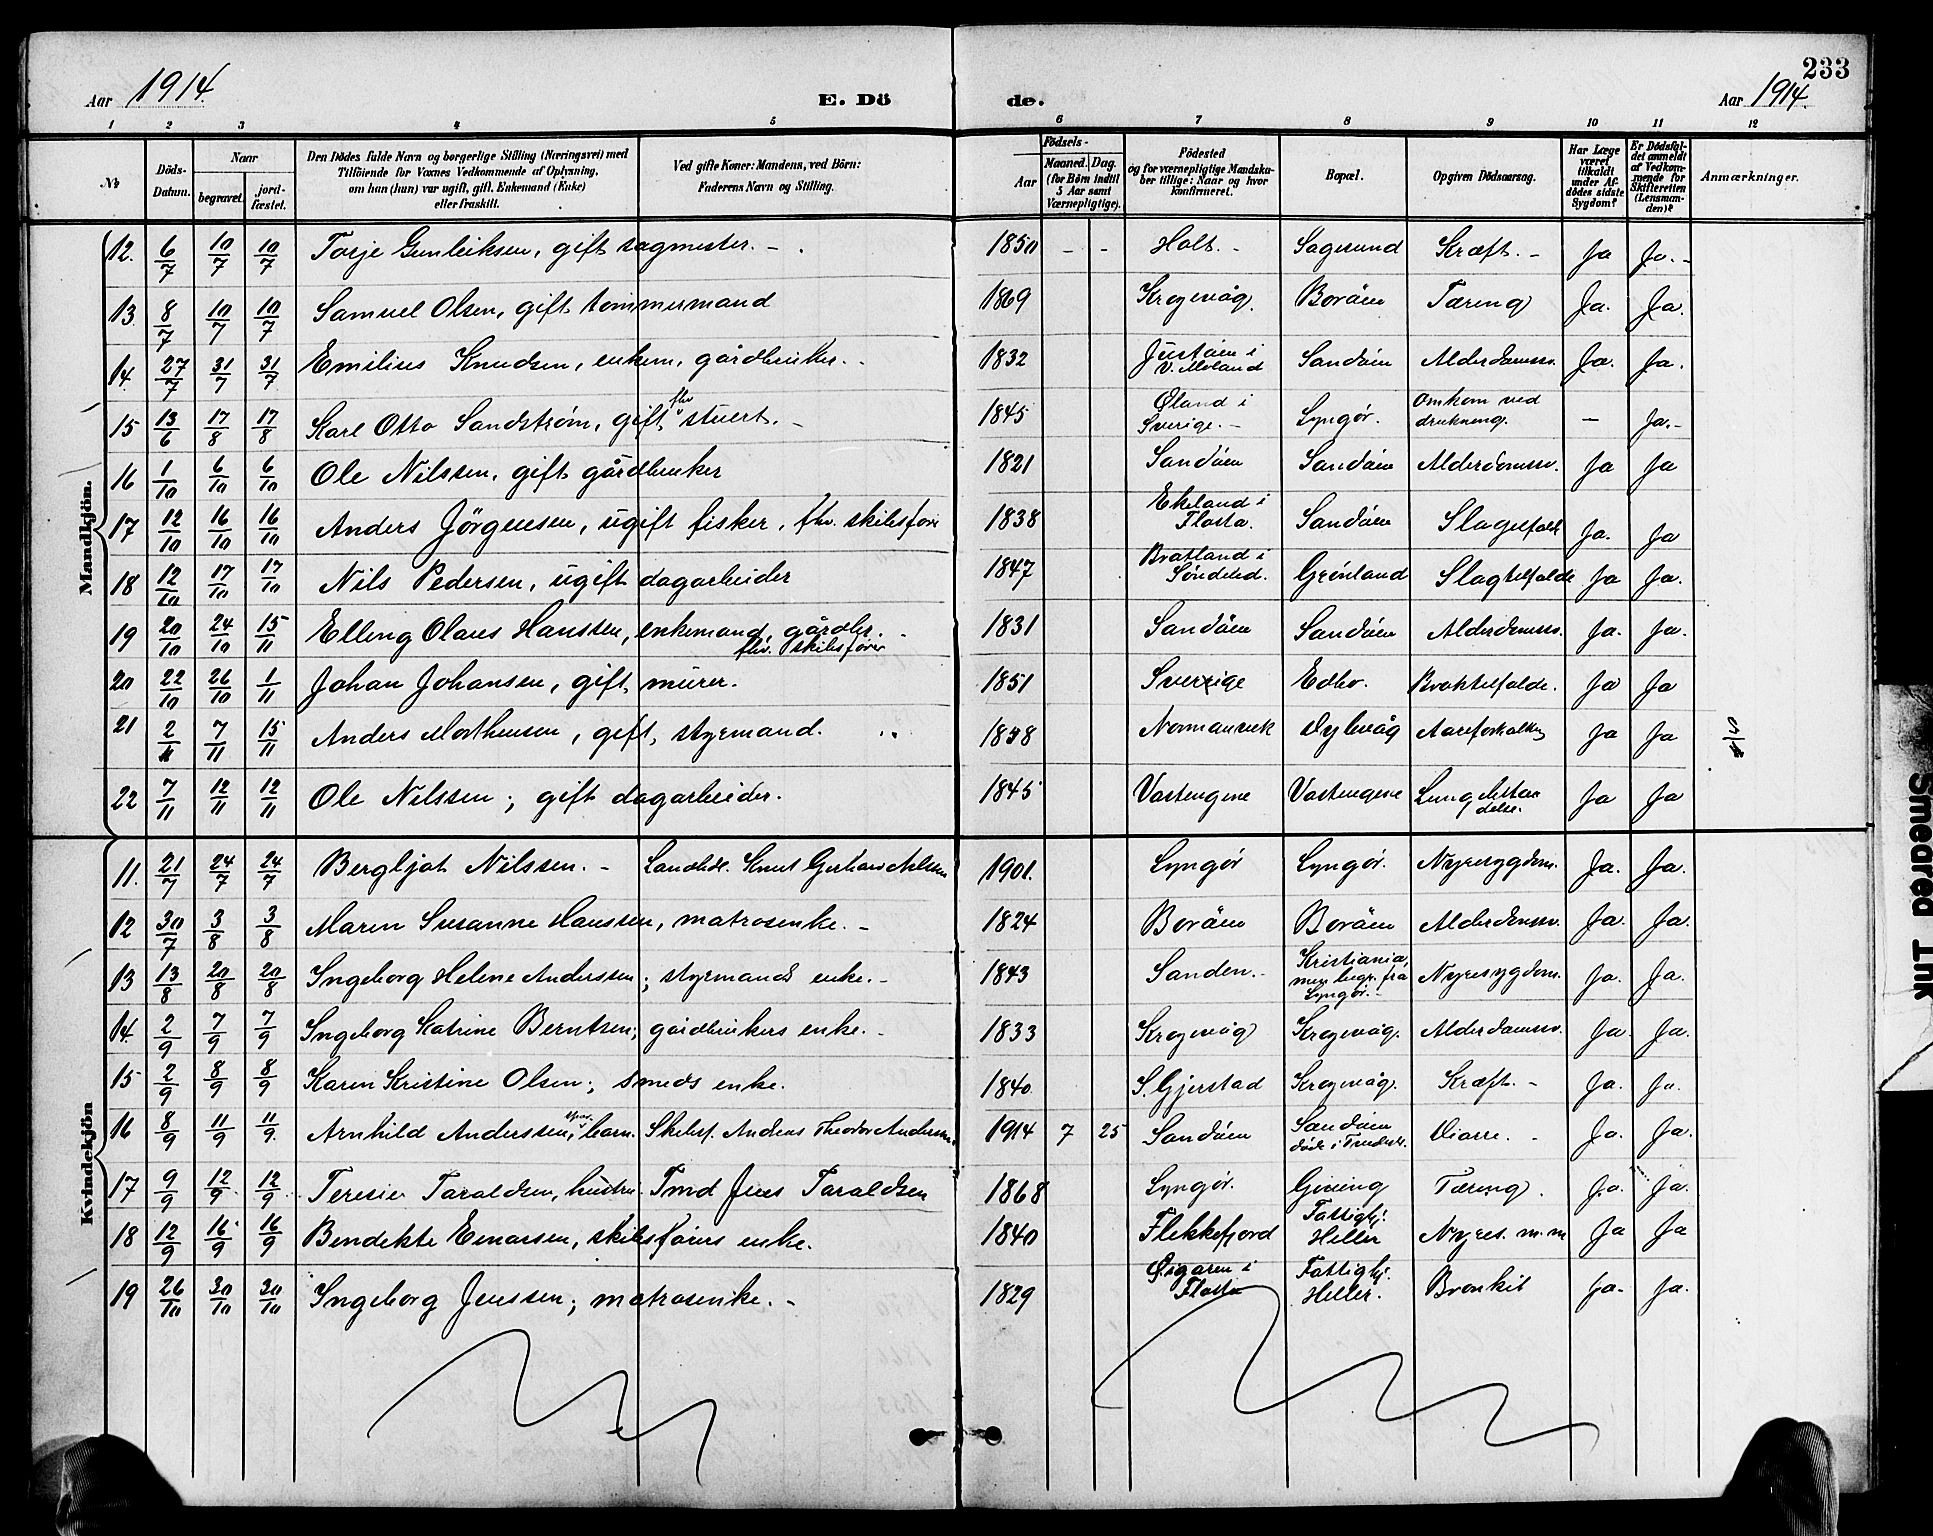 233
Aar 1914.
E. Dö
de.
Aar 1914.
1 2 3 4 5 6 7 8 9 10 11 12
Nr.
Döds-Datum.
Naar
begravet.
jord-fæstet.
Den Dödes fulde Navn og borgerlige Stilling (Næringsvei) med
Tilföiende for Voxnes Vedkommende af Oplysning,
om han (hun) var ugift, gift, Enkemand (Enke)
eller fraskilt.
Ved gifte Koner: Mandens, ved Börn:
Faderens Navn og Stilling.
Födsels-
Aar
Maaned. Dag.
(for Börn indtil
5 Aar samt
Værnepligtige).
Födested
og for værnepligtige Mandska-
ber tillige: Naar og hvor
konfirmeret.
Bopæl.
Opgiven Dödsaarsag.
Har Læge
været
tilkaldt
under Af-
dödes sidste
Sygdom?
Er Dödsfal-
det anmeldt
af Vedkom-
mende for
Skifteretten
(Lensman-
den)?
Anmærkninger.
Mandkjön.
12. 6/7 10/7 10/7 Torje Gunleiksen, gift sagmester. - 1850 - - Holt. - Sagesund Kræft. - Ja Ja. -
13 8/7 10/7 10/7 Samuel Olsen, gift tømmermand 1869 Krogevåg. Boröen Tæring Ja. Ja.
14. 27/7 31/7 31/7 Emilius Knudsen, enkem. gårdbruker. 1832 Justöen i V. Moland Sandöen Alderdomssv. Ja. Ja.
15 13/6 17/8 17/8 Karl Otto Sandstrøm, gift fhv stuert. - 1845 Øland i Sverige. - Lyngör. Omkom ved drukning. - Ja. -
16 1/10 6/10 6/10 Ole Nilssen, gift gårdbruker 1821 Sandöen Sandöen Alderdomssv. Ja Ja
17 12/10 16/10 16/10 Anders Jörgensen, ugift fisker, fhv. skibsför 1838 Ekeland i Flosta. Sandöen Slagtilfælde Ja. Ja
18 12/10 17/10 17/10 Nils Pedersen, ugift dagarbeider 1847 Bratland i Söndeled. Grönland Slagtilfælde Ja Ja.
19 20/10 24/10 15/11 Elling Olaus Hanssen, enkemand, gårdbr. fhv. skibsförer 1831 Sandöen Sandöen Alderdomssv. Ja. Ja.
20 22/10 26/10 1/11 Johan Johansen, gift, murer. 1851 Sverige Edbo. Ja Ja
21 2/11 7/11 15/11 Anders Morthensen, gift, styrmand. 1858 Normansvik Dybvåg Aareforkalkn Ja Ja
22 7/11 12/11 12/11 Ole Nilssen; gift dagarbeider. 1845 Vastengene Vastengene Ja Ja
Kvindekjön
11. 21/7 24/7 24/7 Bergljot Nilssen. - Landhdl. Knut Gerhard Nilssen 1901. Lyngör Lyngör. Nyresygdom. Ja. Ja.
12 30/7 3/8 3/8 Maren Susanne Hanssen, matrosenke. - 1824 Boröen Boröen Alderdomssv. Ja. Ja.
13 13/8 20/8 20/8 Ingeborg Helene Anderssen; styrmands enke. - 1843 Sanden. - Kristiania, men begr. fra Lyngör. - Nyresygdom. Ja. Ja.
14. 2/9 7/9 7/9 Ingeborg Katrine Berntsen; gårdbrukers enke. - 1833 Krogevåg Krogevåg. Alderdomssv. Ja. Ja.
15 2/9 8/9 8/9 Karen Kristine Olsen; smeds enke. 1840 S. Gjerstad Krogevåg. Kræft. - Ja. Ja.
16 8/9 11/9 11/9. Arnhild Anderssen, barn. Skibsf. Anders Theodor Anderssen 1914 7 25 Sandöen Sandöen död i Tvedestr. Diarre. - Ja. Ja.
17 9/9 12/9 12/9 Teresie Taraldsen, hustru. Tmd Jens Taraldsen 1868 Lyngör. Gjeving Tæring. Ja. Ja.
18 12/9 16/9 16/9 Bendikte Evensen, skibsförers enke. 1840 Flekkefjord Fattighj. Heller Nyres. m.m Ja Ja
19 26/10 30/10 30/10 Ingeborg Jenssen; matrosenke. - 1829 Flosta Fattighj. Heller. Bronkit Ja. Ja.
Smeared Ink